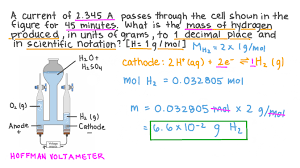 A current of 2.345 A passes through the cell shown in the
figure for 45 minutes. What is the mass of hydrogen
produced, in units of grams, to 1 decimal place and
in scientific notation? [H = 1 g/mol]
M H₂ = 2 x 1 g/mol
cathode: 2H⁺(aq) + 2e⁻ ⇌ 1H₂ (g)
mol H₂ = 0.032805 mol
m = 0.032805 mol x 2 g/mol
= 6.6 x 10⁻² g H₂
H₂O +
H₂SO₄
O₂ (g)
H₂ (g)
Anode
+
Cathode
-
HOFFMAN VOLTAMETER